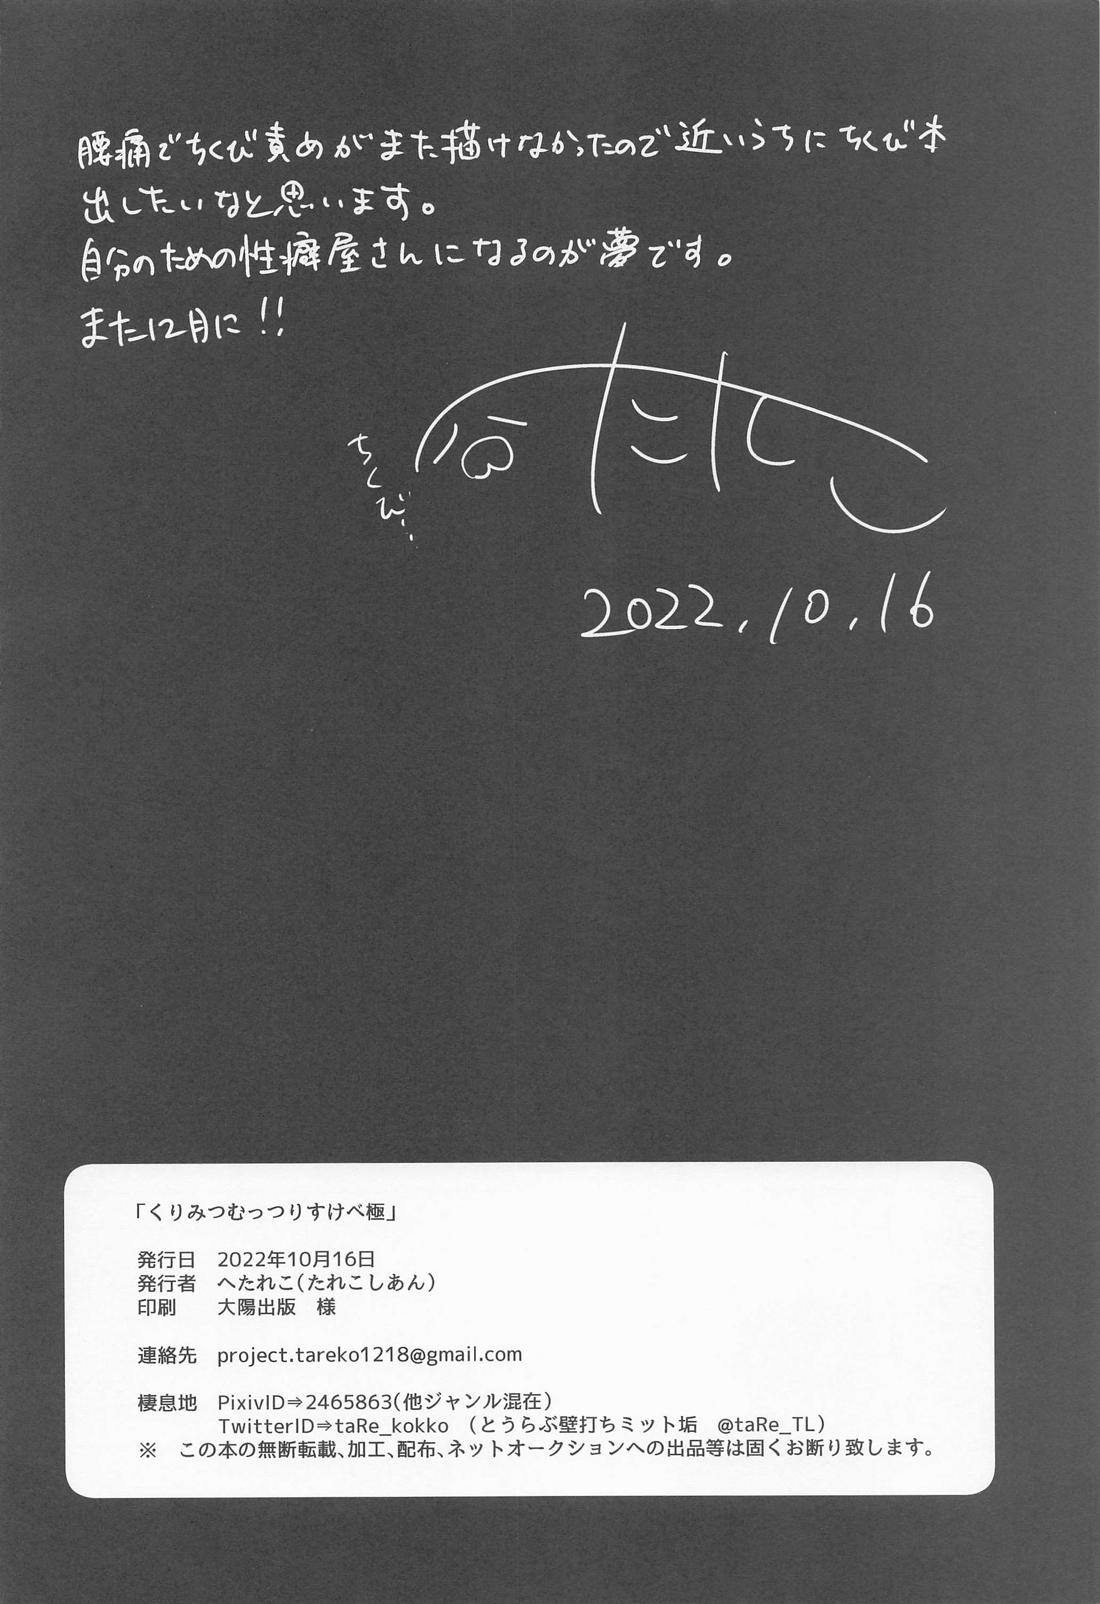 腰痛でちくび責めがまた描けなかったので近いうちにちくび本
出したいなと思います。
自分のための性癖屋さんになるのが夢です。
また12月に!!
ちくび…
へたれこ
2022.10.16
「くりみつむっつりすけべ極」
発行日　2022年10月16日
発行者　へたれこ(たれこしあん)
印刷　　大陽出版　様
連絡先　project.tareko1218@gmail.com
棲息地　PixivID⇒2465863(他ジャンル混在)
TwitterID⇒taRe_kokko　(とうらぶ壁打ちミット垢　@taRe_TL)
※　この本の無断転載、加工、配布、ネットオークションへの出品等は固くお断り致します。